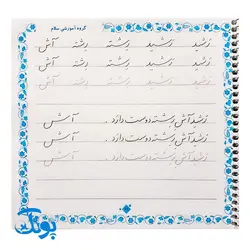 گروه آموزشی سلام
رَشید رَشید رِشته رِشته آش
رَشید رَشید رِشته رِشته آش
رَشید رَشید رِشته رِشته آش
رَشید آش رِشته دوست دارَد . آش
رَشید آش رِشته دوست دارَد . آش
رَشید آش رِشته دوست دارَد . آش
پونک